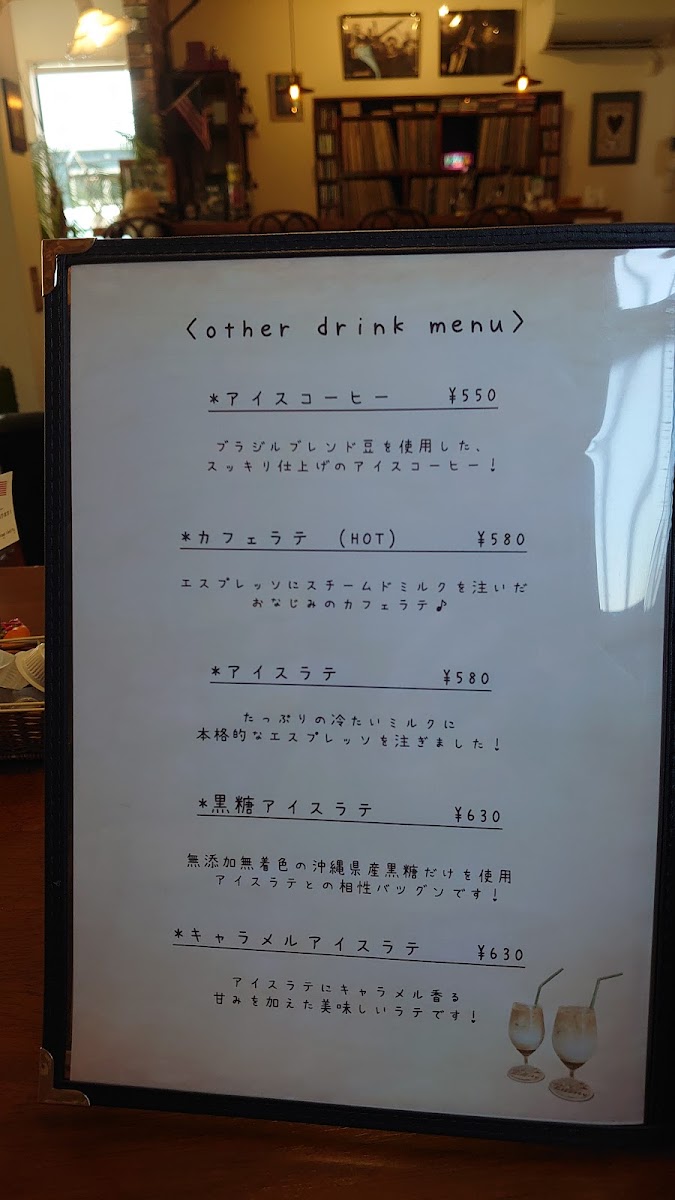 〈other drink menu〉
*アイスコーヒー ¥550
ブラジルブレンド豆を使用した、
スッキリ仕上げのアイスコーヒー!
*カフェラテ (HOT) ¥580
エスプレッソにスチームドミルクを注いだ
おなじみのカフェラテ♪
*アイスラテ ¥580
たっぷりの冷たいミルクに
本格的なエスプレッソを注ぎました!
*黒糖アイスラテ ¥630
無添加無着色の沖縄県産黒糖だけを使用
アイスラテとの相性バツグンです!
*キャラメルアイスラテ ¥630
アイスラテにキャラメル香る
甘みを加えた美味しいラテです!